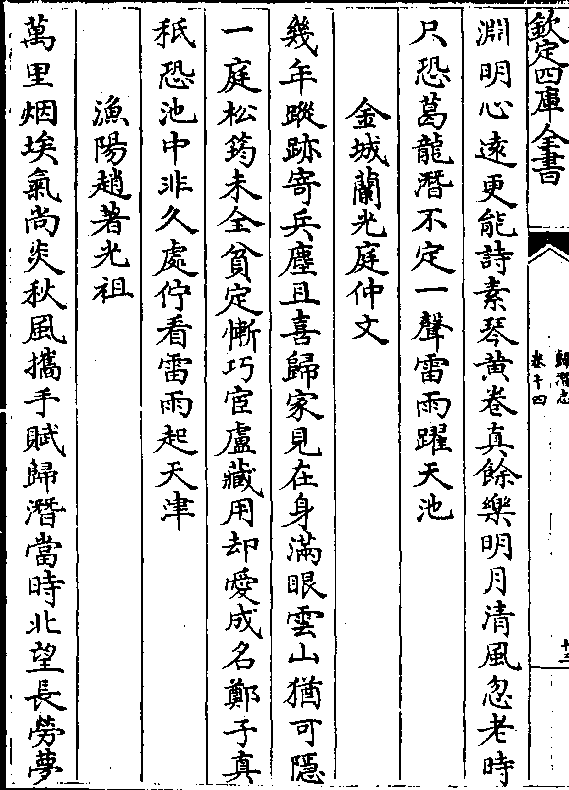 欽定四庫全書
歸潛志
卷十四
十三
淵明心遠更能詩素琴黃卷真餘樂明月清風忽老時
只恐葛龍潛不定一聲雷雨躍天池
金城蘭光庭仲文
幾年蹤跡寄兵塵且喜歸家見在身滿眼雲山猶可隱
一庭松筠未全貧定慚巧宦盧藏用却愛成名鄭子真
秖恐池中非久處佇看雷雨起天津
漁陽趙著光祖
萬里烟埃氣尚炎秋風攜手賦歸潛當時北望長勞夢